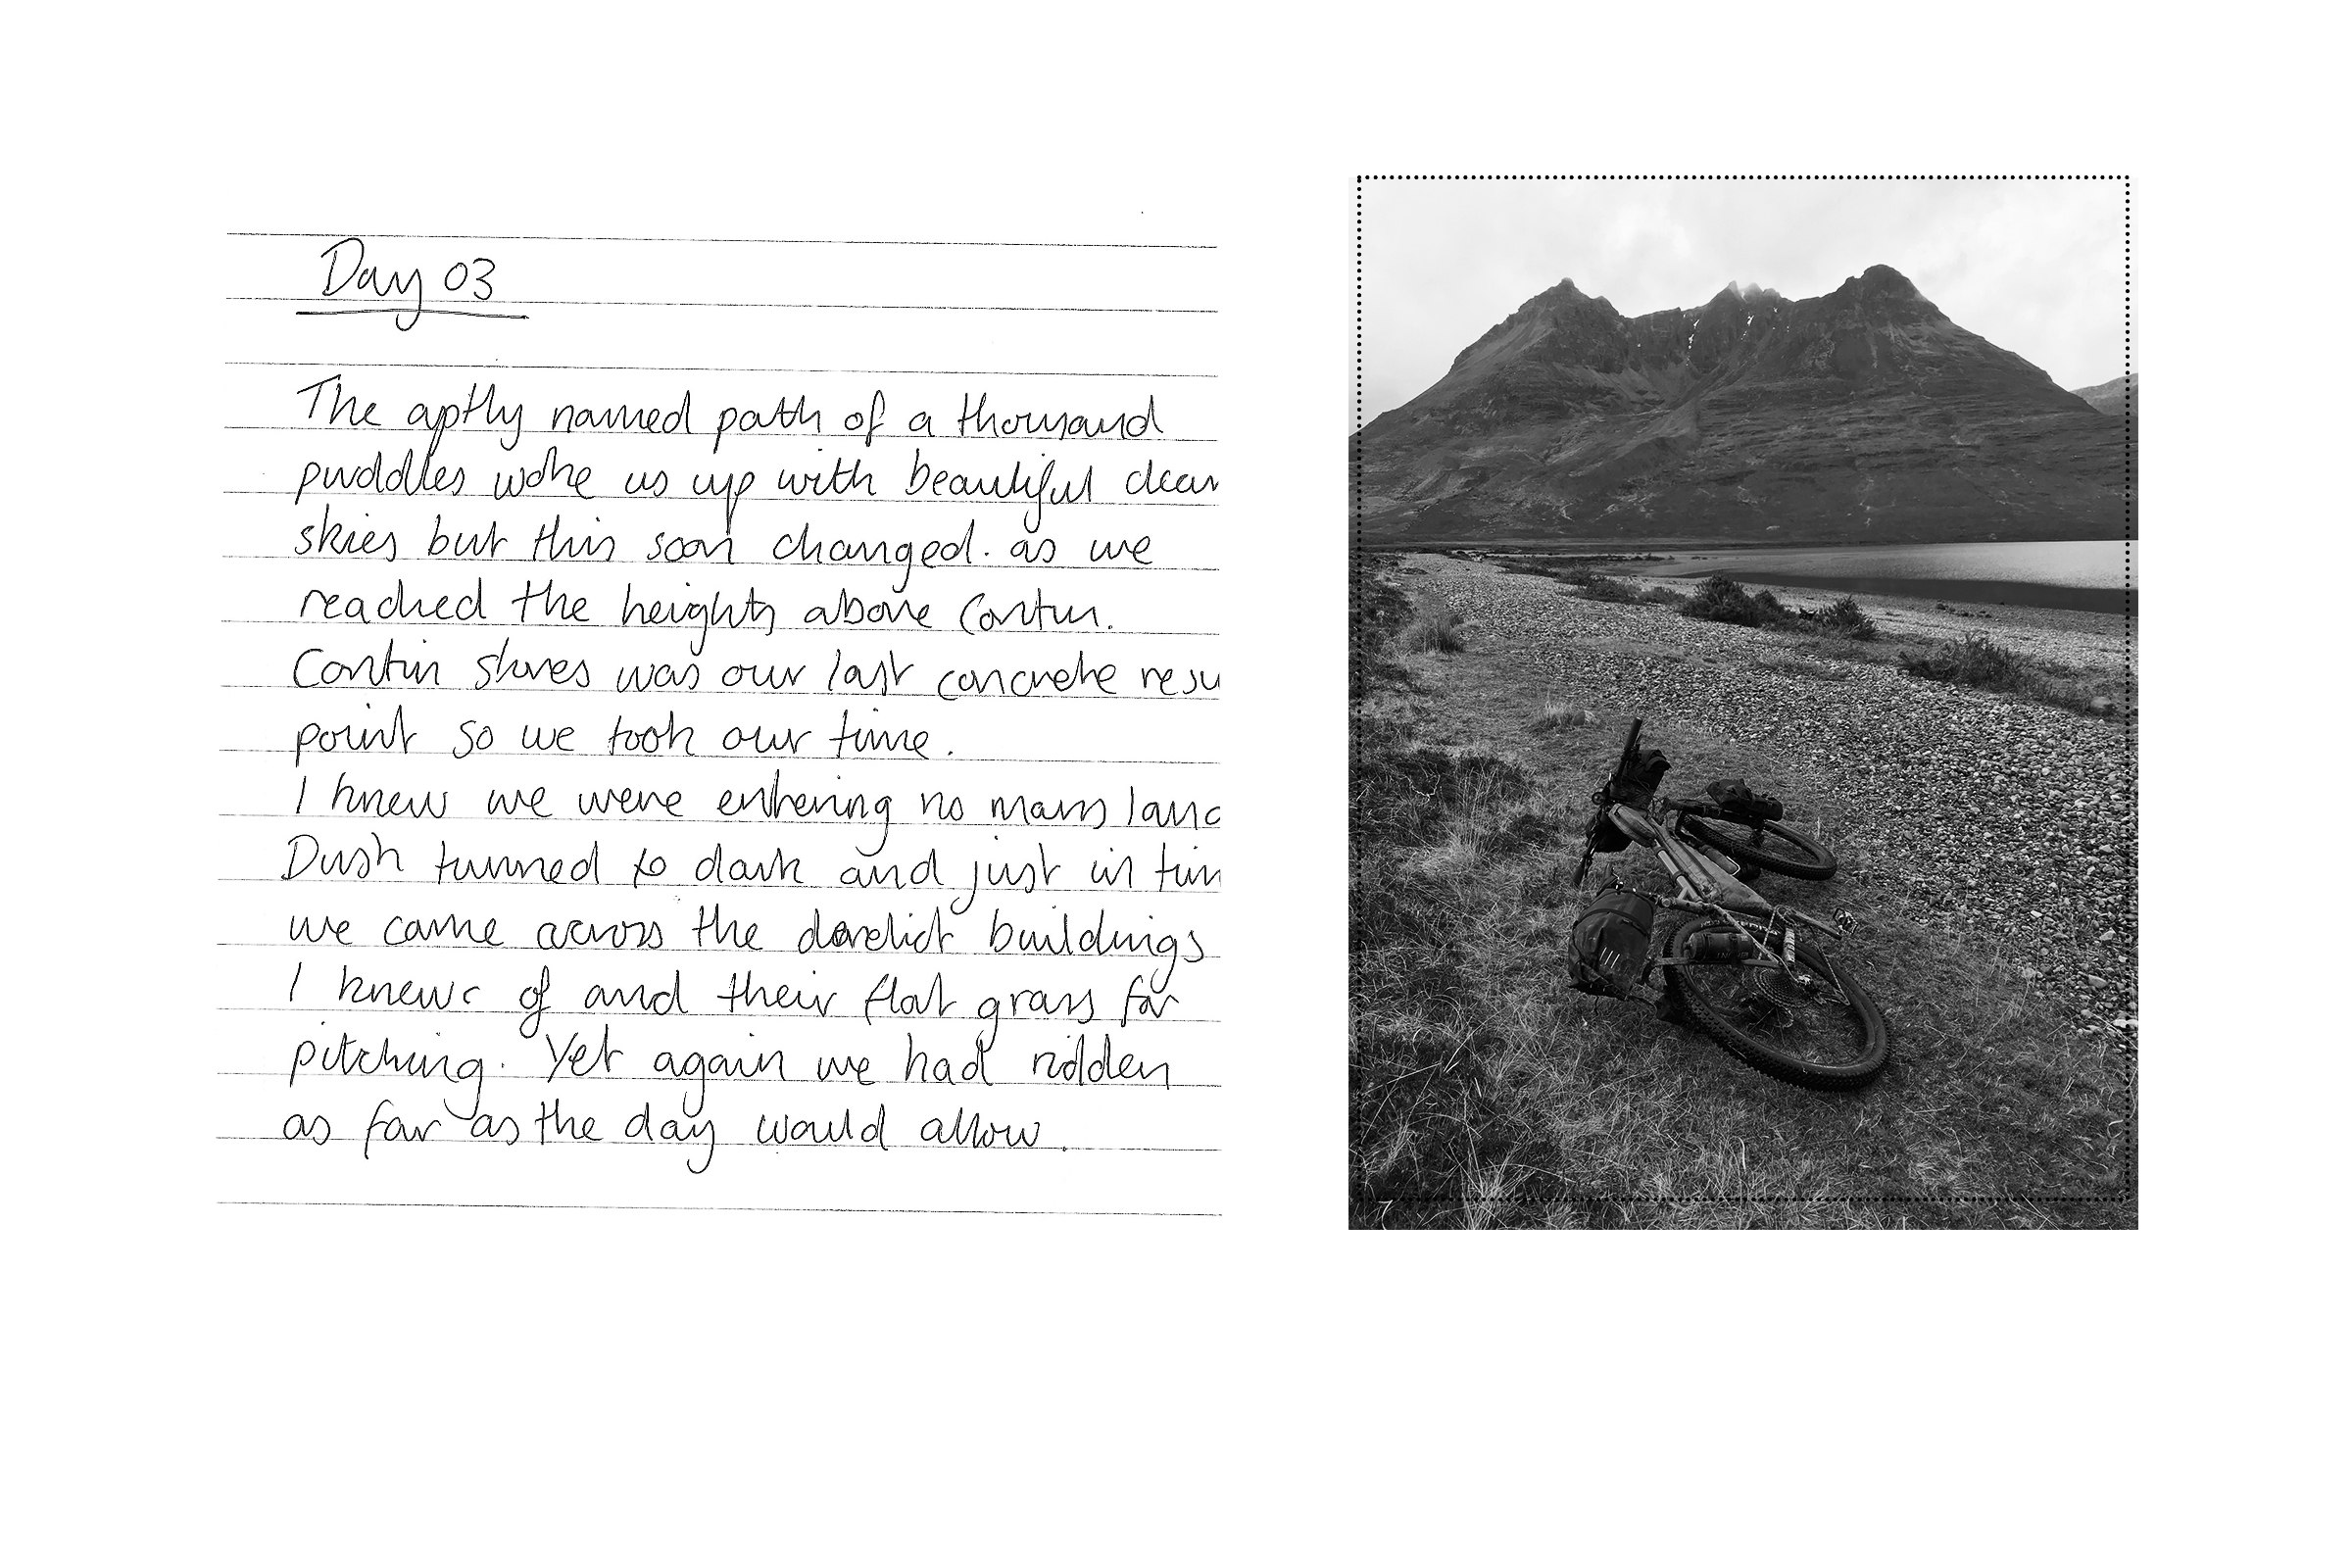 Day 03
The aptly named path of a thousand
puddles woke us up with beautiful clear
skies but this soon changed. as we
reached the heights above Contin.
Contin stores was our last concrete resu
point so we took our time.
I knew we were entering no mans land
Dusk turned to dark and just in tim
we came across the derelict buildings
I knew of and their flat grass for
pitching. Yet again we had ridden
as far as the day would allow.